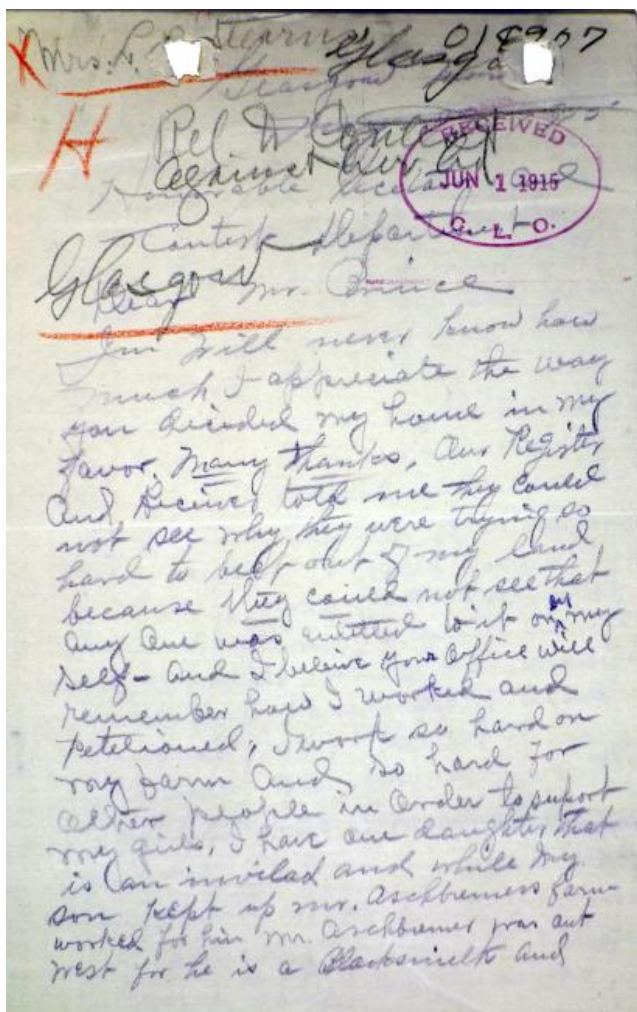 Mrs. L. Stearns Glasgow 018907
Glasgow
H Rel to Contest
against her Ed
Honorable
RECEIVED
JUN 1 1915
G. L. O.
Contest Department
Glasgow
Dear Mr. Bruce
will never know how
much I appreciate the way
you decided my home in my
favor. Many thanks, Our Register
and Reciever told me they could
not see why they were trying so
hard to beat out of my land
because they could not see that
any one was entitled to it only my
self - and I believe your office will
remember how I worked and
petitioned, I work so hard on
my farm and so hard for
other people in order to suport
my girls, I have one daughter that
is an invilad and while my
son kept up mr. Aschbremers farm
worked for him mr. Aschbremer was out
west for he is a Blacksmith and